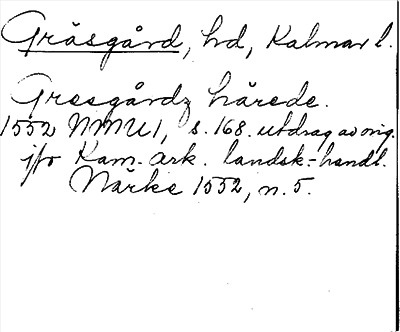 Gräsgård, hd, Kalmar l.
Gresgårdz härede.
1552 NMU1, s. 168. utdrag av orig.
jfr Kam. ark. landsk.-handl.
Närke 1552, n. 5.